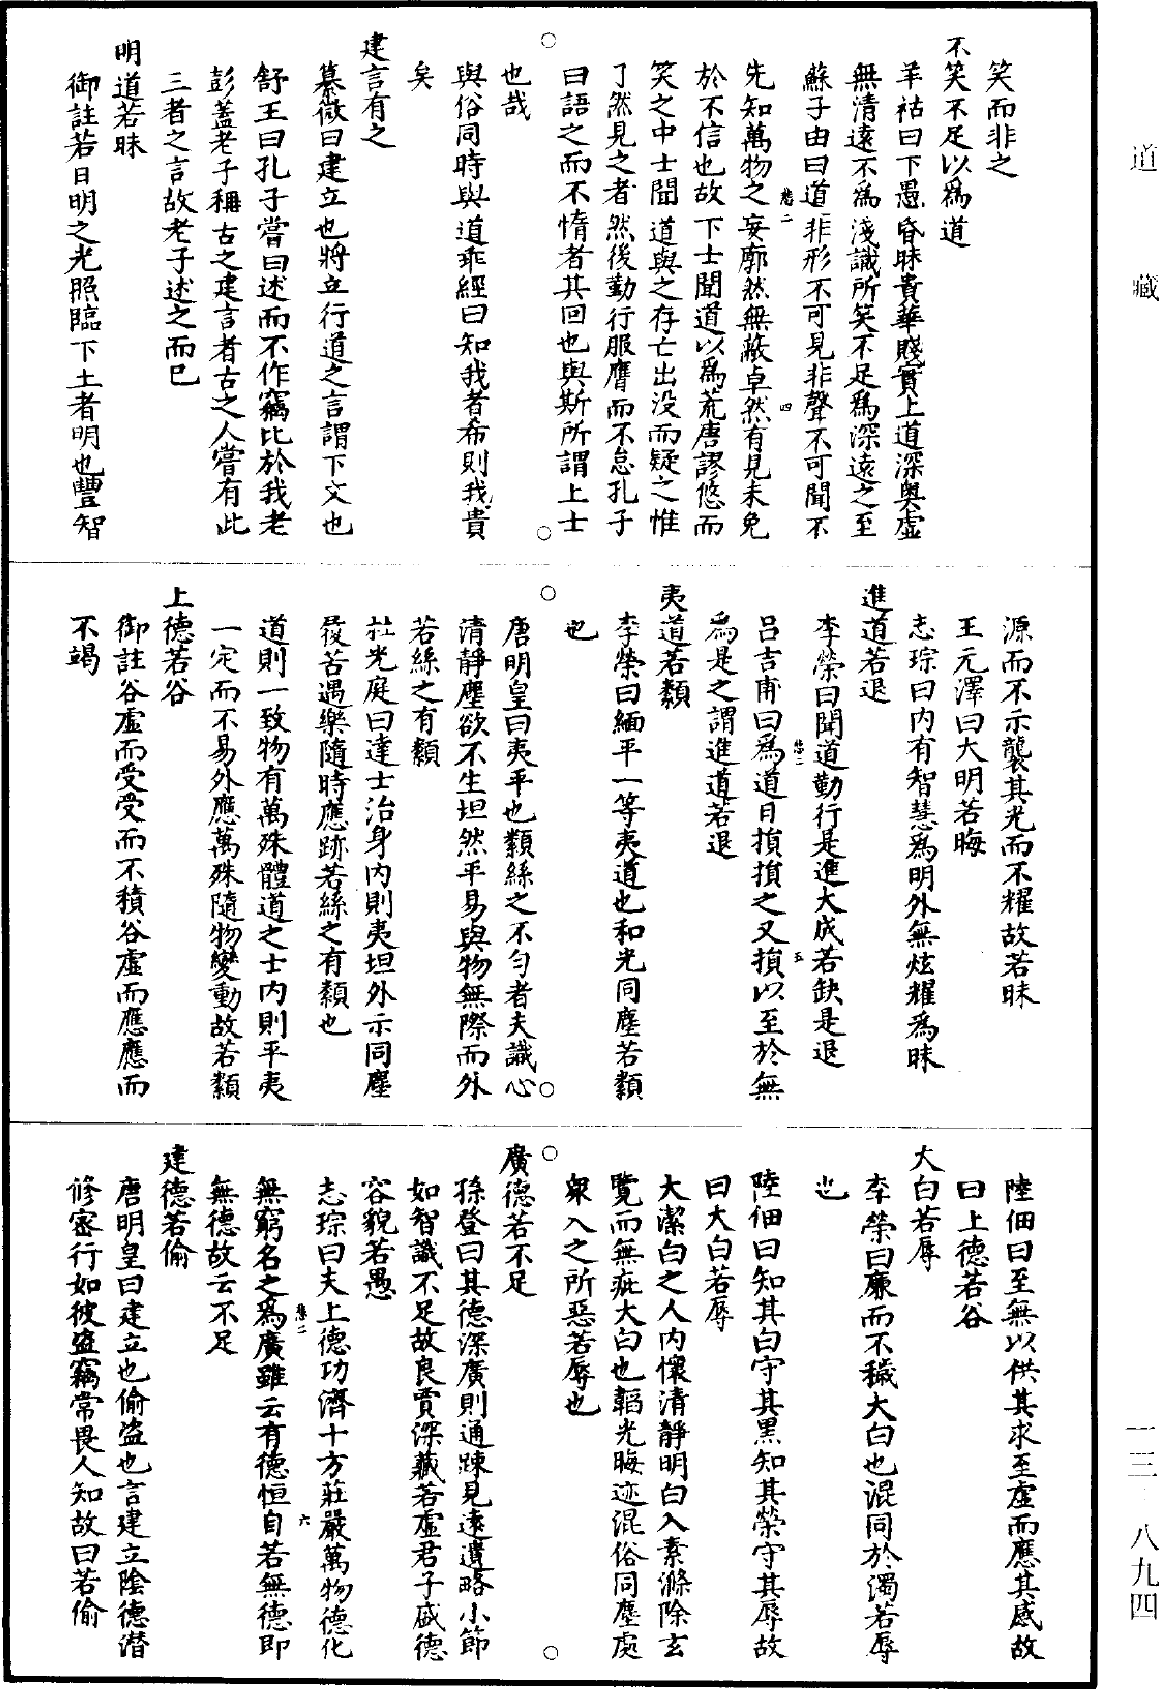 笑而非之
不笑不足以爲道
羊祜曰下愚昏昧貴華賤實上道深奧虛
無清遠不爲淺識所笑不足爲深遠之至
蘇子由曰道非形不可見非聲不可聞不
先知萬物之妄廓然無蔽卓然有見未免
於不信也故下士聞道以爲荒唐謬悠而
笑之中士聞道與之存亡出没而疑之惟
了然見之者然後勤行服膺而不怠孔子
曰語之而不惰者其回也與斯所謂上士
也哉
與俗同時與道乖經曰知我者希則我貴
矣
建言有之
纂微曰建立也將立行道之言謂下文也
舒王曰孔子嘗曰述而不作竊比於我老
彭蓋老子稱古之建言者古之人嘗有此
三者之言故老子述之而已
明道若昧
御註若日明之光照臨下土者明也豐智
源而不示襲其光而不耀故若昧
王元澤曰大明若晦
志琮曰内有智慧爲明外無炫耀爲昧
進道若退
李榮曰聞道勤行是進大成若缺是退
呂吉甫曰爲道日損損之又損以至於無
爲是之謂進道若退
夷道若纇
李榮曰緬平一等夷道也和光同塵若纇
也
唐明皇曰夷平也纇絲之不勻者夫識心
清靜塵欲不生坦然平易與物無際而外
若絲之有纇
杜光庭曰達士治身内則夷坦外示同塵
履苦遇樂隨時應跡若絲之有纇也
道則一致物有萬殊體道之士内則平夷
一定而不易外應萬殊隨物變動故若纇
上德若谷
御註谷虛而受受而不積谷虛而應應而
不竭
陸佃曰至無以供其求至虛而應其感故
曰上德若谷
大白若辱
李榮曰廉而不穢大白也混同於濁若辱
也
陸佃曰知其白守其黑知其榮守其辱故
曰大白若辱
大潔白之人内懷清靜明白入素滌除玄
覽而無疵大白也韜光晦迹混俗同塵處
衆人之所惡若辱也
廣德若不足
孫登曰其德深廣則通疎見遠遺略小節
如智識不足故良賈深藏若虛君子盛德
容貌若愚
志琮曰夫上德功濟十方莊嚴萬物德化
無窮名之爲廣雖云有德恒自若無德即
無德故云不足
建德若偷
唐明皇曰建立也偷盗也言建立陰德潜
修密行如彼盗竊常畏人知故曰若偷
道藏
一三·八九四